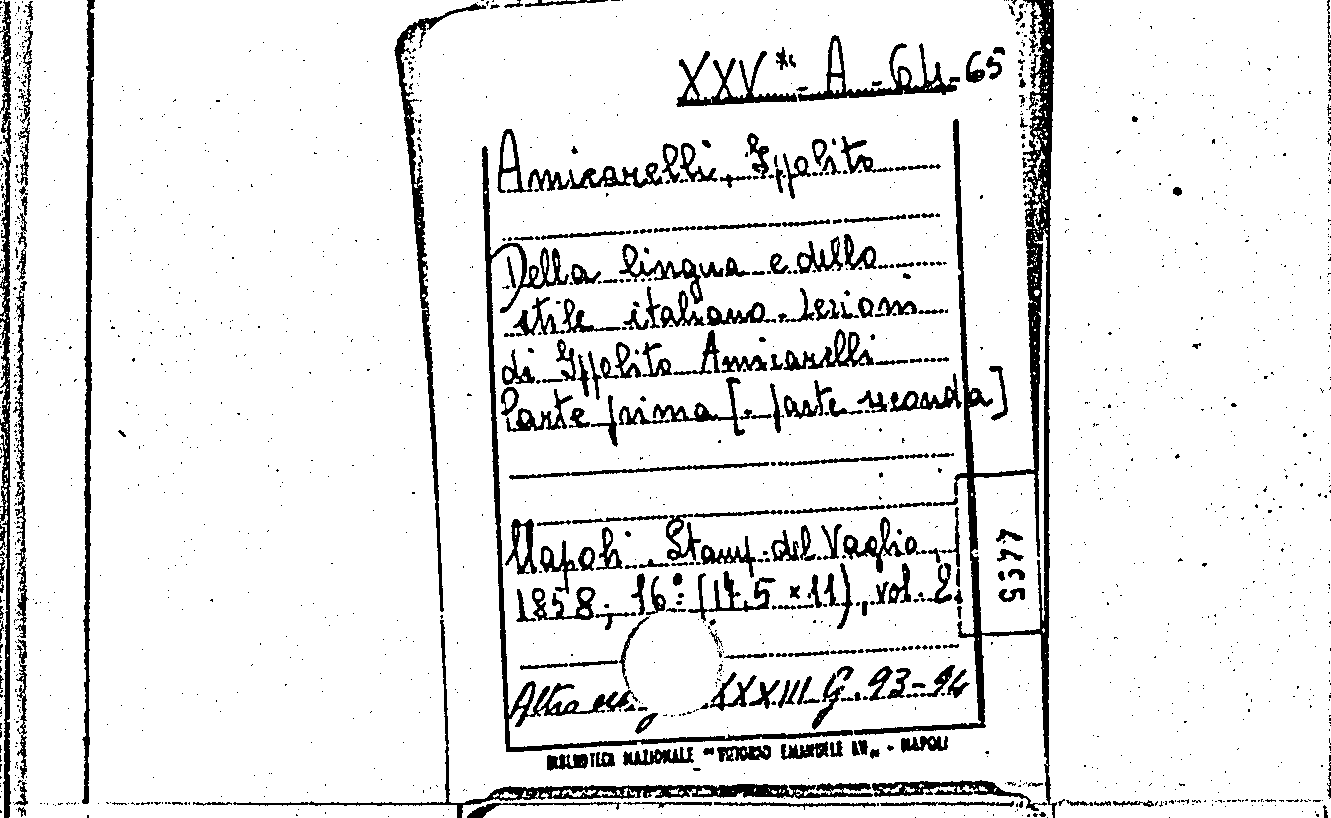 XXV** - A - 64-65
Amicarelli, Ippolito
Della lingua e dello
stile italiano. Lezioni
di Ippolito Amicarelli
Parte prima [- parte seconda]
Napoli. Stamp. del Vaglio,
1858, 16° (17,5 × 11), vol. 2.
Altra XXXIII G. 93-94
BIBLIOTECA NAZIONALE "VITTORIO EMANUELE III" - NAPOLI
4455